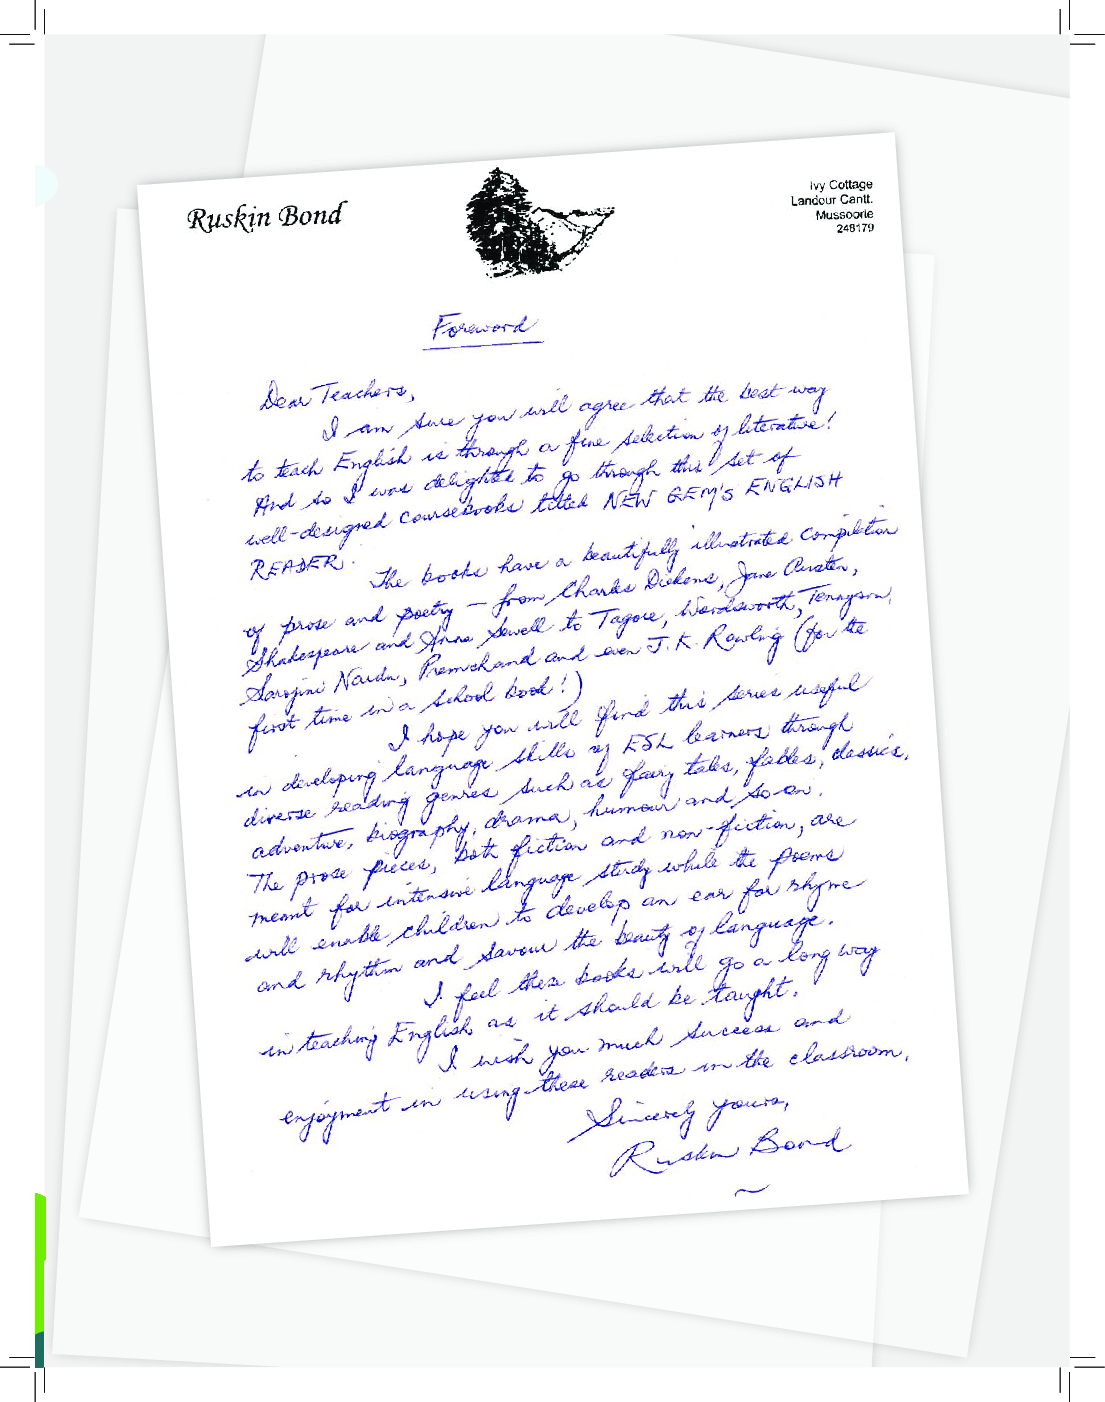 Ruskin Bond
Ivy Cottage
Landour Cantt.
Mussoorie
248179
Foreword
Dear Teachers,
I am sure you will agree that the best way
to teach English is through a fine selection of literature!
And so I was delighted to go through this set of
well-designed coursebooks titled NEW GEM'S ENGLISH
READER.
The books have a beautifully illustrated compilation
of prose and poetry – from Charles Dickens, Jane Austen,
Shakespeare and Anna Sewell to Tagore, Wordsworth, Tennyson,
Sarojini Naidu, Premchand and even J. K. Rowling (for the
first time in a school book!)
I hope you will find this series useful
in developing language skills of ESL learners through
diverse reading genres such as fairy tales, fables, classics,
adventure, biography, drama, humour and so on.
The prose pieces, both fiction and non-fiction, are
meant for intensive language study while the poems
will enable children to develop an ear for rhyme
and rhythm and savour the beauty of language.
I feel these books will go a long way
in teaching English as it should be taught.
I wish you much success and
enjoyment in using these readers in the classroom.
Sincerely yours,
Ruskin Bond